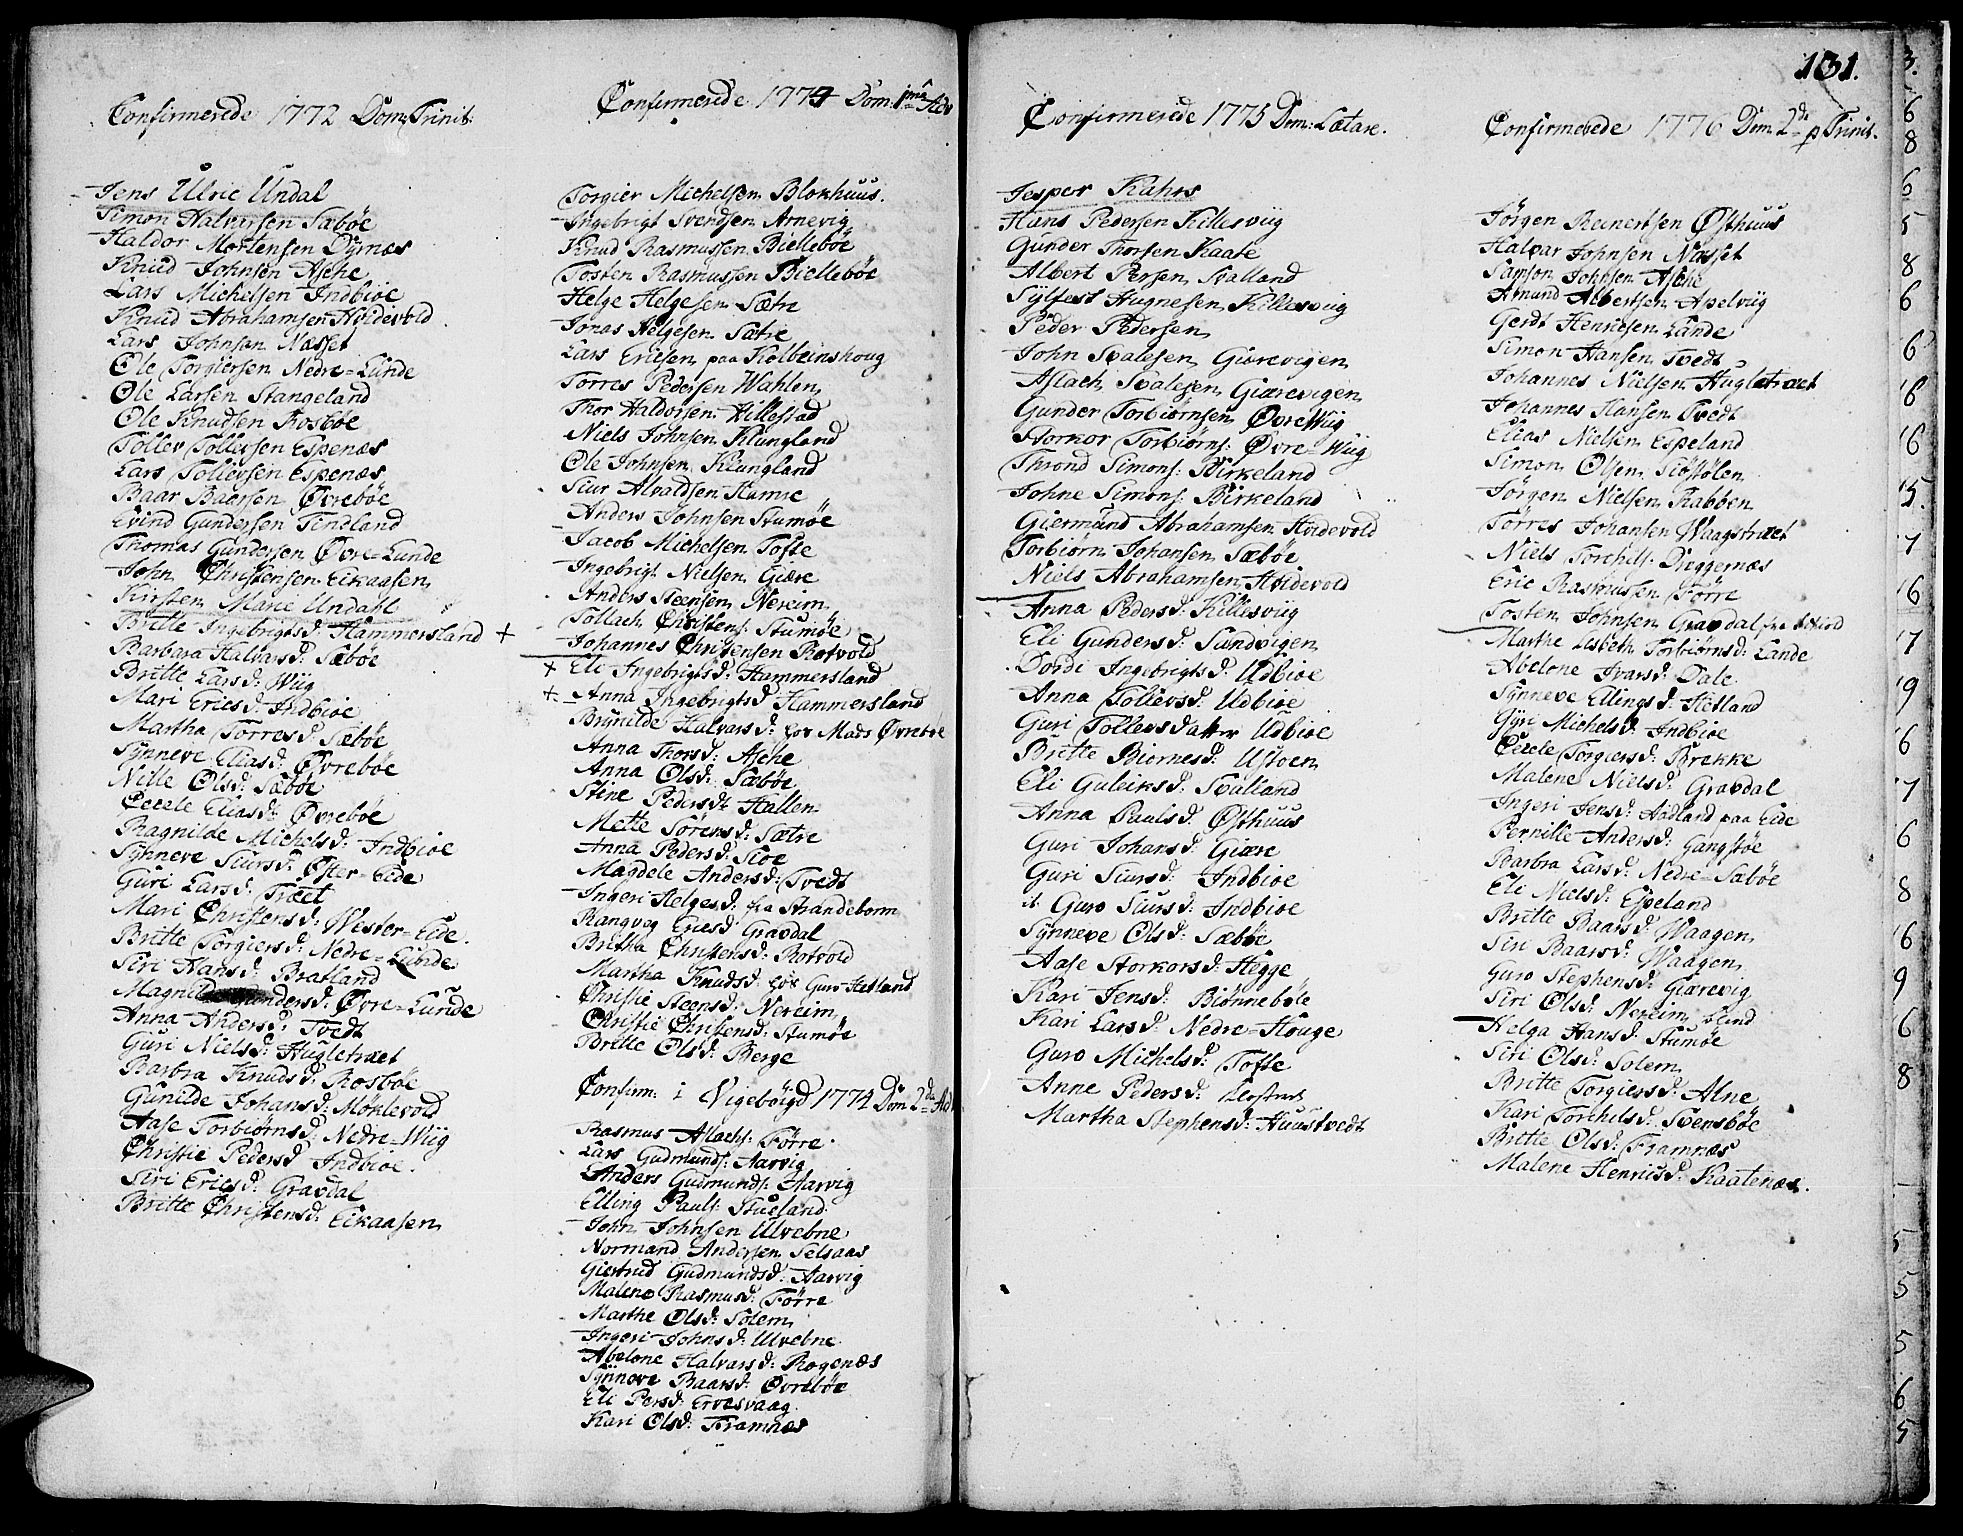 131.
Confirmerede 1772 Dom: Trinit:
Jens Ulric Undal
Simon Halvarsen Sæbøe
Haldor Mortensen Dyrnæs
Knud Johnsen Asche
Lars Michelsen Indbiøe
Knud Abrahamsen Hvidevold
Lars Johnsen Næsset
Ole Torgiersen Nedre-Lunde
Ole Larsen Stangeland
Ole Knudsen Rosbøe
Tollev Tollevsen Espenæs
Lars Tollevsen Espenæs
Baar Baarsen Øvrebøe
Evind Gundersen Tindland
Thomas Gundersen Øvre-Lunde
John Christensen Eikaasen
Kirsten Marie Undahl
Britte Ingebrigtsd: Hammersland +
Barbara Halvarsd: Sæbøe
Britte Larsd: Wiig
Mari Ericsd: Indbiøe
Martha Torresd: Sæbøe
Synneve Eliasd: Øvrebøe
Nille Olsd: Sæbøe
Cecele Eliasd: Øvrebøe
Ragnilde Michelsd: Indbiøe
Synneve Siursd: Øster-Eide
Guri Larsd: Træet
Mari Christensd: Wester-Eide.
Britte Torgiersd: Nedre-Lunde
Siri Hansd: Bratland
Magnild Gundersd: Øvre-Lunde
Anna Andersd: Tvedt
Guri Nielsd: Hugletræet
Barbra Knudsd: Rosbøe
Gunilde Johansd: Møklevold
Aase Torbiørnsd: Nedre-Wiig
Christie Pedersd Indbiøe.
Siri Ericsd: Gravdal
Britte Christensd: Eikaasen
Confirmerede 1774 Dom: 1ma Adv
Torgier Michelsen Blokhuus.
Ingebrigt Svendsen Arnevig
Knud Rasmussen Biellebøe
Tosten Rasmussen Biellebøe
Helge Helgesen Sætre
Jonas Helgesen Sætre
Lars Ericsen paa Kolbeinshoug
Torres Pedersen Wahlen
Thor Haldorsen Hillestad
Niels Johnsen Klungland
Ole Johnsen Klungland
Siur Alvaldsen Hamre
Anders Johnsen Stumøe
Jacob Michelsen Tofte
Ingebrigt Nielsen Giære
Anders Steensen Nereim
Tollach Christens: Stumøe
Johannes Christensen Rotvold
+ Eli Ingebrigtsd: Hammersland
+ Anna Ingebrigtsd Hammersland
Brynilde Halvarsd: hos Mads Øvrebøe
Anna Thorsd: Asche
Anna Olsd: Sæbøe
Stine Pedersd: Hallen
Mette Sørensd: Sætre
Anna Pedersd: Sioe
Magdele Andersd: Tvedt
Ingeri Helgesd: fra Strandeborm
Rangveg Ericsd Gravdal
Britha Christensd: Rotvold
Martha Knudsd: hos Guro Hetland
Christie Steensd: Nereim
Christie Christensd: Stumøe
Britte Olsd: Berge
Confirm: i Vigebøigd 1774 Dom 2da Adv
Rasmus Aslachs: Førre.
Lars Gudmunds: Aarvig
Anders Gudmunds: Aarvig
Elling Pauls: Stueland
John Johnsen Ulvebne
Normand Andersen Selsaas
Giertrud Gudmundsd: Aarvig
Malene Rasmusd: Førre
Marthe Olsd: Solem
Ingeri Johnsd: Ulvebne
Abelone Halvarsd: Rogenæs
Synneve Baarsd: Øvrebøe
Eli Persd: Ervesvaag
Kari Olsd: Framnæs
Confirmerede 1775 Dom: Lætare.
Jesper Kahrs
Hans Pedersen Killesviig
Gunder Thorsen Kaate
Albert Persen Svalland
Sylfest Hagnesen Killesviig
Peder Pedersen
John Svalesen Giærevigen
Aslach Svalesen Giærevigen
Gunder Torbiørnsen Øvre Wiig
Storkor Torbiørns: Øvre-Wiig
Thrond Simons: Birkeland
Johne Simons: Birkeland
Giermund Abrahamsen Hvidevold
Torbiørn Johansen Sæbøe
Niels Abrahamsen Hvidevold
Anna Pedersd: Killesviig
Eli Gundersd: Sundvigen
Dordi Ingebrigtsd: Udbiøe
Anna Tollevsd: Udbiøe
Guri Tollevsdatter Udbiøe
Britte Biornesd: Ustven
Eli Guleiksd: Svalland
Anna Paulsd: Østhuus
Guri Johansd: Giære
Guri Siursd: Indbiøe
it Guro Siursd: Indbiøe
Synneve Olsd: Sæbøe
Aase Storkorsd: Hegge
Kari Jensd: Biønnebøle
Kari Larsd: Nedre-Houge
Guro Michelsd: Tofte
Anne Pedersd:
Martha Stephensd: Huustvedt
Confirmerede 1776 Dom 2da p Trinit.
Jørgen Reinertsen Østhuus
Halvar Johnsen Næsset
Samson Johnsen Asche
Amund Albertsen Apelviig
Gerdt Henricsen Lunde
Simon Hansen Tvedt
Johannes Nielsen Hugletræet
Johannes Hansen Tvedt
Elias Nielsen Espeland
Simon Olsen Siøstølen
Jørgen Nielsen Rabben
Torres Johansen Waagstræet
Niels Torchils: Dreggernæs
Eric Rasmussen Førre
Tosten Johnsen Gravdal fra
Marthe Lisbeth Torbiørnsd: Lande
Abelone Ivarsd: Dale
Synneve Ellingsd: Hetland
Gyri Michelsd: Indbiøe
Cecele Torgiersd: Brekke
Malene Nielsd: Gravdal
Ingeri Jensd: Aadland paa Eide
Pernille Andersd: Gangstøe
Barbra Larsd: Nedre-Sæbøe
Eli Nielsd: Espeland
Britte Baarsd: Waagen
Siri Baarsd: Waagen
Guro Stephensd: Giærevig
Siri Olsd: Nereim blind
Helga Hansd: Stumøe
Siri Olsd: Solem
Britte Torgiersd: Alne
Kari Torchilsd: Svensbøe
Britte Olsd: Framnæs
Malene Henricsd: Kaatenæs.